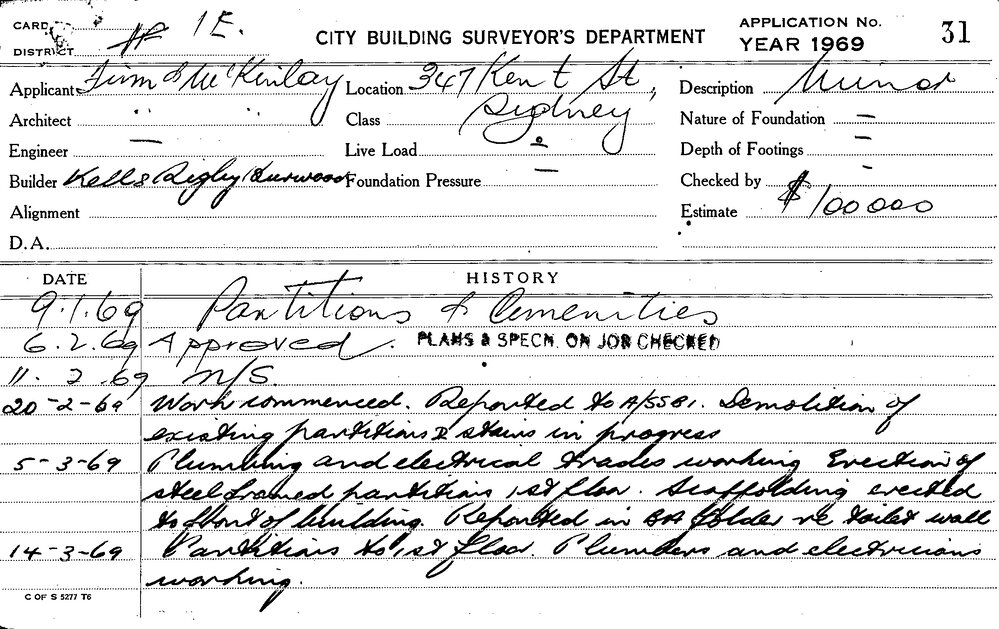 CARD
DISTRICT 1E.
CITY BUILDING SURVEYOR'S DEPARTMENT
APPLICATION No. 31
YEAR 1969
Applicant & McKinlay Location 347 Kent St, Description Minor
Architect " " Class Sydney Nature of Foundation —
Engineer — Live Load Depth of Footings —
Builder Kells Rigby Burwood Foundation Pressure — Checked by -
Alignment Estimate $100000
D.A.
DATE HISTORY
9.1.69 Partitions & Amenities
6.2.69 Approved. PLANS & SPECN. ON JOB CHECKED
11.2.69 N/S.
20-2-69 Work commenced. Reported to Demolition of
existing partitions & stairs in progress
5-3-69 Plumbing and electrical trades working Erection of
steel framed partitions 1st floor. Scaffolding erected
to front of building. Reported in BA folder re toilet wall
14-3-69 Partitions to 1st floor. Plumbers and electricians
working.
C OF S 5277 T6